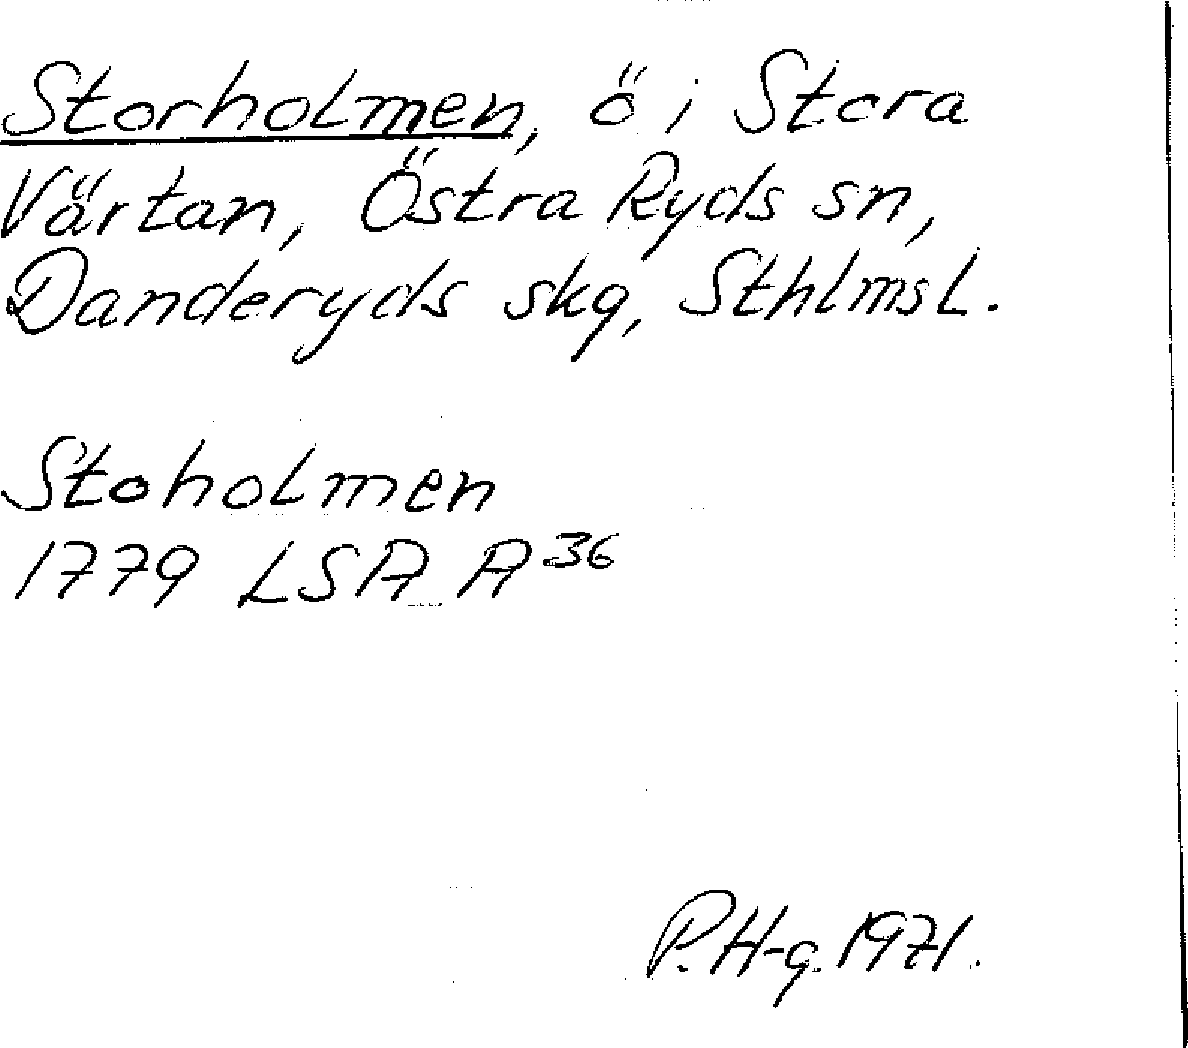 Storholmen, ö i Stora
Värtan, Östra Ryds sn,
Danderyds skg, Sthlms L.
Stoholmen
1779 LSA A 36
P. H-g. 1971.